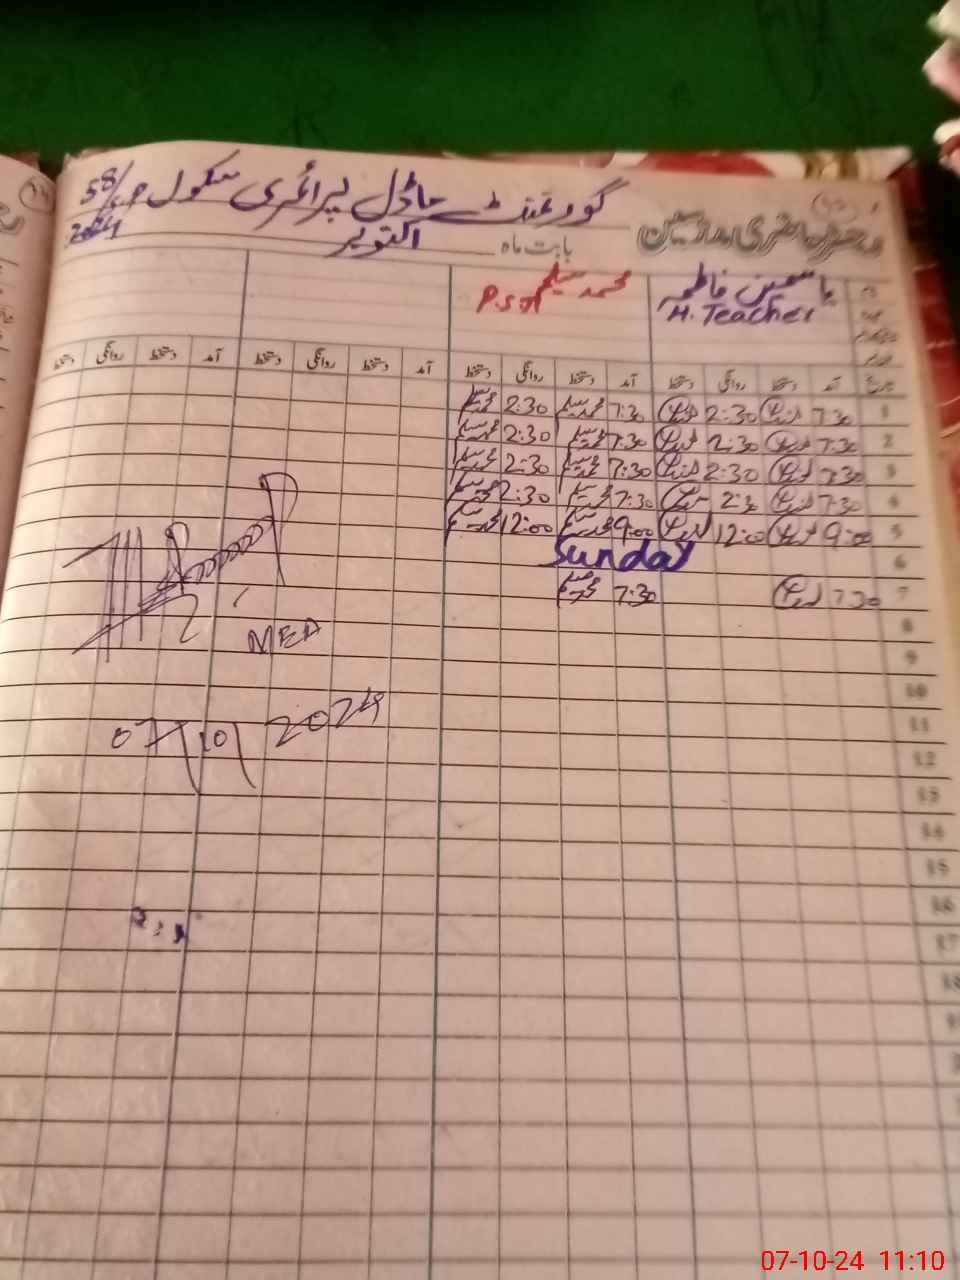 گورنمنٹ ماڈل پرائمری سکول 58/م
دفتر حاضری ملازمین بابت ماہ اکتوبر 2024
یاسمین فاطمہ محمد سلیم
H. Teacher P.S.T
تاریخ آمد دستخط روانگی دستخط آمد دستخط روانگی دستخط آمد دستخط روانگی دستخط آمد دستخط روانگی دستخط
1 7:30 2:30 7:30 محمد سلیم 2:30 محمد سلیم
2 7:30 2:30 7:30 محمد سلیم 2:30 محمد سلیم
3 7:30 2:30 7:30 محمد سلیم 2:30 محمد سلیم
4 7:30 2:30 7:30 محمد سلیم 2:30 محمد سلیم
5 9:00 12:00 9:00 محمد سلیم 12:00 محمد سلیم
6 Sunday
7 7:30 7:30 محمد سلیم
8
MEA
9
10
11
07/10/2024
12
13
14
15
16
17
18
07-10-24 11:10